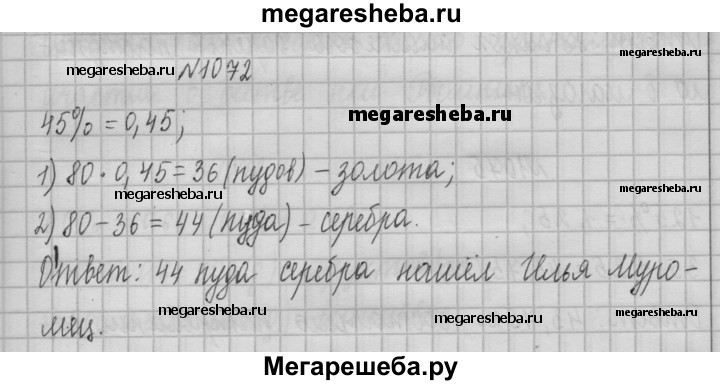 megaresheba.ru
megaresheba.ru
megaresheba.ru №1072
megaresheba.ru
45% = 0,45;
1) 80 · 0,45 = 36 (пудов) – золота;
megaresheba.ru
megaresheba.ru
2) 80 – 36 = 44 (пуда) – серебра.
Ответ: 44 пуда серебра нашёл Илья Муро-
megaresheba.ru
мец.
megaresheba.ru
megaresheba.ru
Мегарешеба.ру